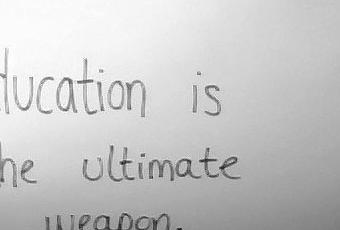 ducation is
he ultimate
weapon.